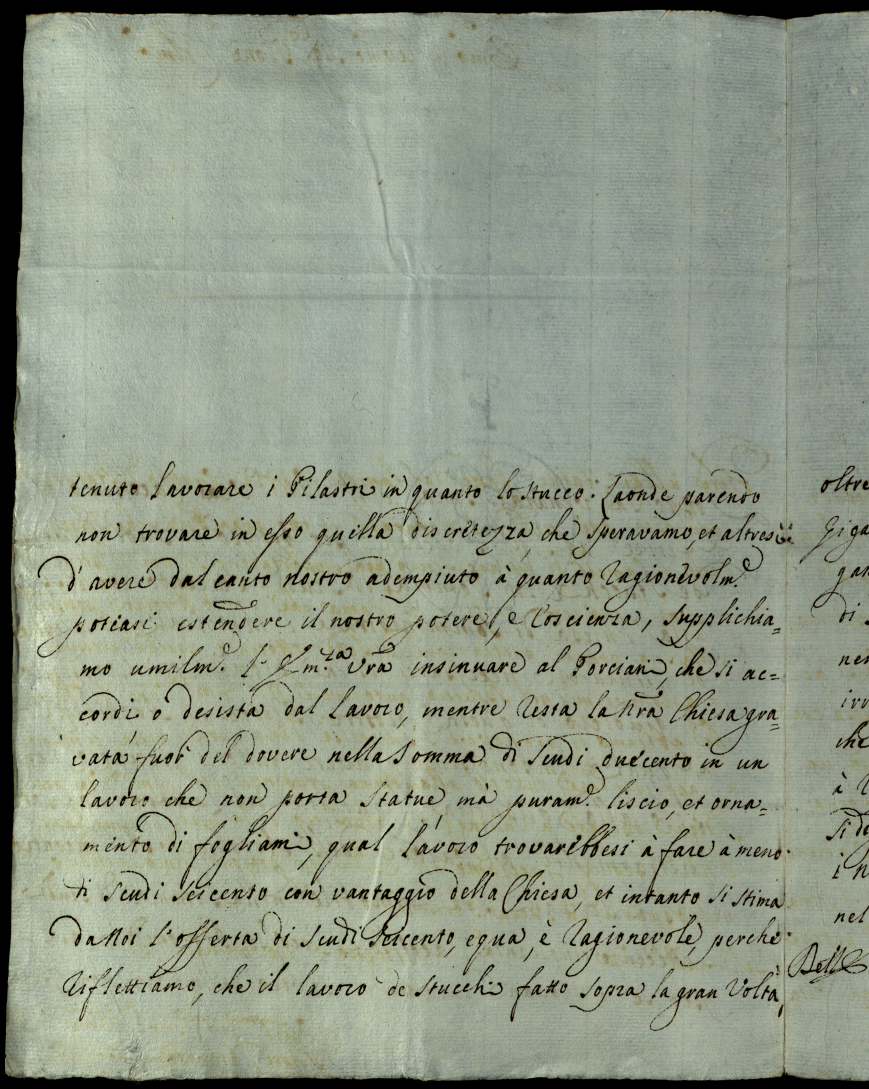 tenuto lavorare i Pilastri in quanto lo stucco. Laonde parendo
non trovare in esso quella discretezza, che speravamo, et altresi
d'avere dal canto nostro adempiuto à quanto ragionevolm.e
potiasi estendere il nostro potere, e coscienza, supplichia=
mo umilm.e l' Ill.ma vrã insinuare al Porciani, che si ac=
cordi ò desista dal lavoro, mentre resta la nrã Chiesa gra=
vata fuor del dovere nella somma di scudi duecento in un
lavoro che non porta statue mà puram.e liscio, et orna=
mento di fogliami, qual lavoro trovarebbesi à fare à meno
di scudi seicento con vantaggio della Chiesa, et intanto si stima
da Noi l'offerta di scudi seicento, equa, è ragionevole, perche
riflettiamo, che il lavoro de stucchi fatto sopra la gran Volta,
oltre
giga
gan
di
nen
irr
che
à
si de
i n
nel